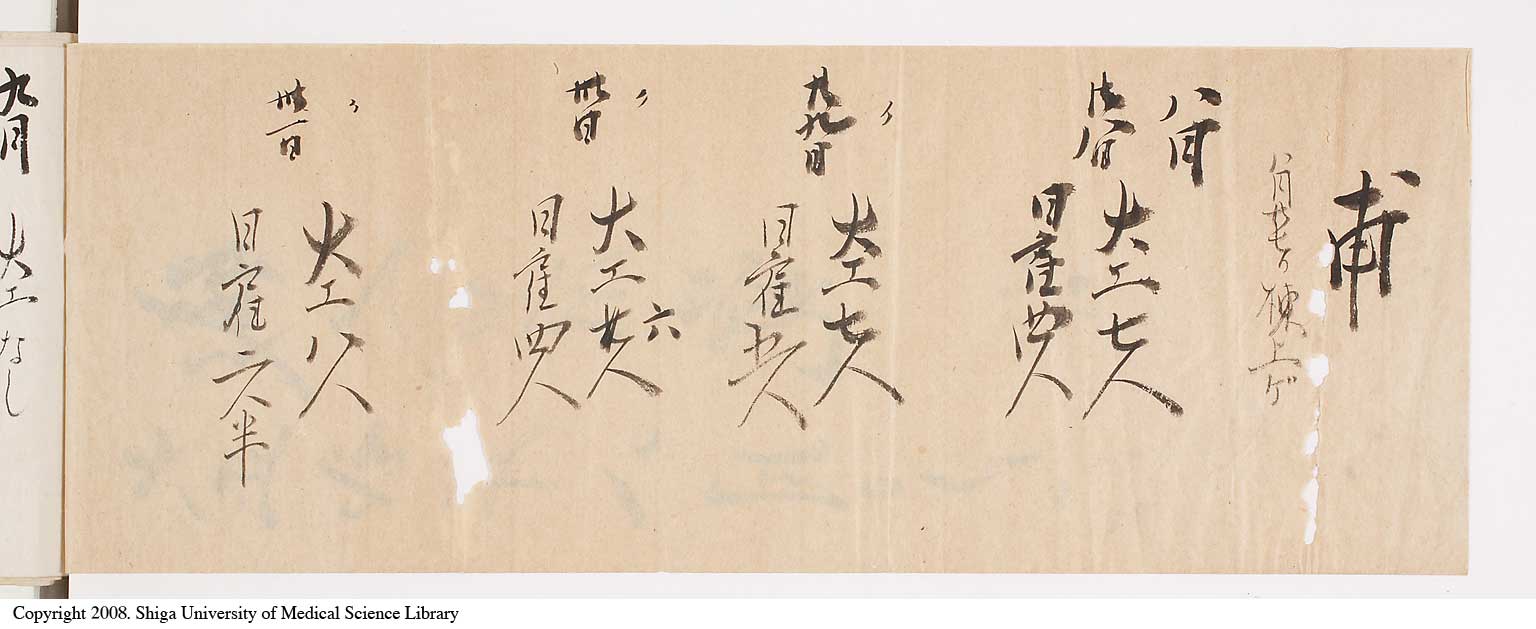 甫
八月廿七日棟上ゲ
八月
廿八日
大工七人
日雇四人
〃
廿九日
大工七人
日雇五人
〃
卅日
大工廿六人
日雇四人
〃
卅一日
大工八人
日雇二人半
九月
大工なし
Copyright 2008. Shiga University of Medical Science Library